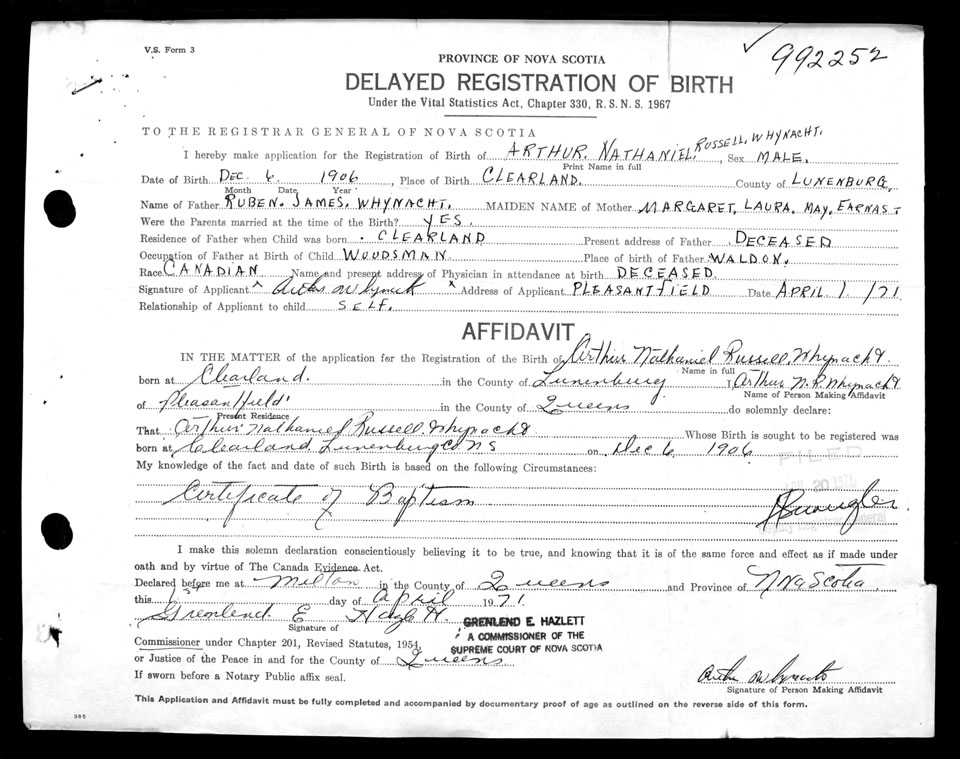 V.S. Form 3
992252
PROVINCE OF NOVA SCOTIA
DELAYED REGISTRATION OF BIRTH
Under the Vital Statistics Act, Chapter 330, R.S.N.S. 1967
TO THE REGISTRAR GENERAL OF NOVA SCOTIA
I hereby make application for the Registration of Birth of ARTHUR. NATHANIEL. RUSSELL. WHYNACHT. Sex MALE.
Print Name in full
Date of Birth DEC. 6. 1906, Place of Birth CLEARLAND. County of LUNENBURG.
Month Date Year
Name of Father RUBEN. JAMES. WHYNACHT. MAIDEN NAME of Mother MARGARET. LAURA. MAY. EARNAST
Were the Parents married at the time of the Birth? YES.
Residence of Father when Child was born CLEARLAND Present address of Father DECEASED
Occupation of Father at Birth of Child WOODSMAN Place of birth of Father WALDON.
Race CANADIAN Name and present address of Physician in attendance at birth DECEASED.
Signature of Applicant x Arthur Whynacht x Address of Applicant PLEASANTFIELD Date APRIL 1/71
Relationship of Applicant to child SELF.
AFFIDAVIT
IN THE MATTER of the application for the Registration of the Birth of Arthur Nathaniel Russell, Whynacht.
Name in full
born at Clearland. in the County of Lunenburg I Arthur N. R. Whynacht
Name of Person Making Affidavit
of Pleasantfield in the County of Queens do solemnly declare:
Present Residence
That Arthur Nathaniel Russell Whynacht Whose Birth is sought to be registered was
born at Clearland Lunenburg Co NS on Dec 6 1906
My knowledge of the fact and date of such Birth is based on the following Circumstances:
FILED
20 1971
Certificate of Baptism
I make this solemn declaration conscientiously believing it to be true, and knowing that it is of the same force and effect as if made under
oath and by virtue of The Canada Evidence Act.
Declared before me at Milton in the County of Queens and Province of Nova Scotia
this 1st day of April 1971.
Grenlend E Hazlett
Signature of
GRENLEND E. HAZLETT
A COMMISSIONER OF THE
SUPREME COURT OF NOVA SCOTIA
Commissioner under Chapter 201, Revised Statutes, 1954,
or Justice of the Peace in and for the County of Queens
If sworn before a Notary Public affix seal.
Arthur Whynacht
Signature of Person Making Affidavit
This Application and Affidavit must be fully completed and accompanied by documentary proof of age as outlined on the reverse side of this form.